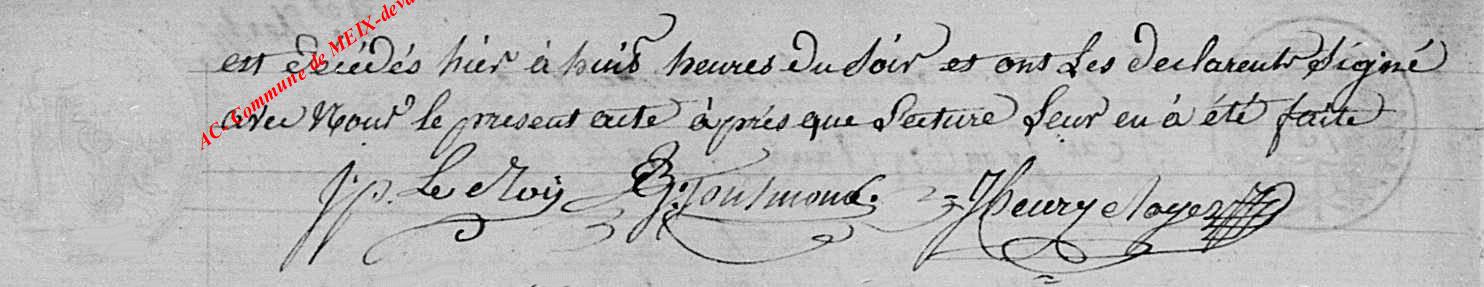 AC Commune de MEIX-deva
est décédés hier à huit heures du soir et ont Les declarents Signé
avec Nous le present acte àprés que Lecture Leur en à été faite
J:p. Le Roy Toutmond. J Henry